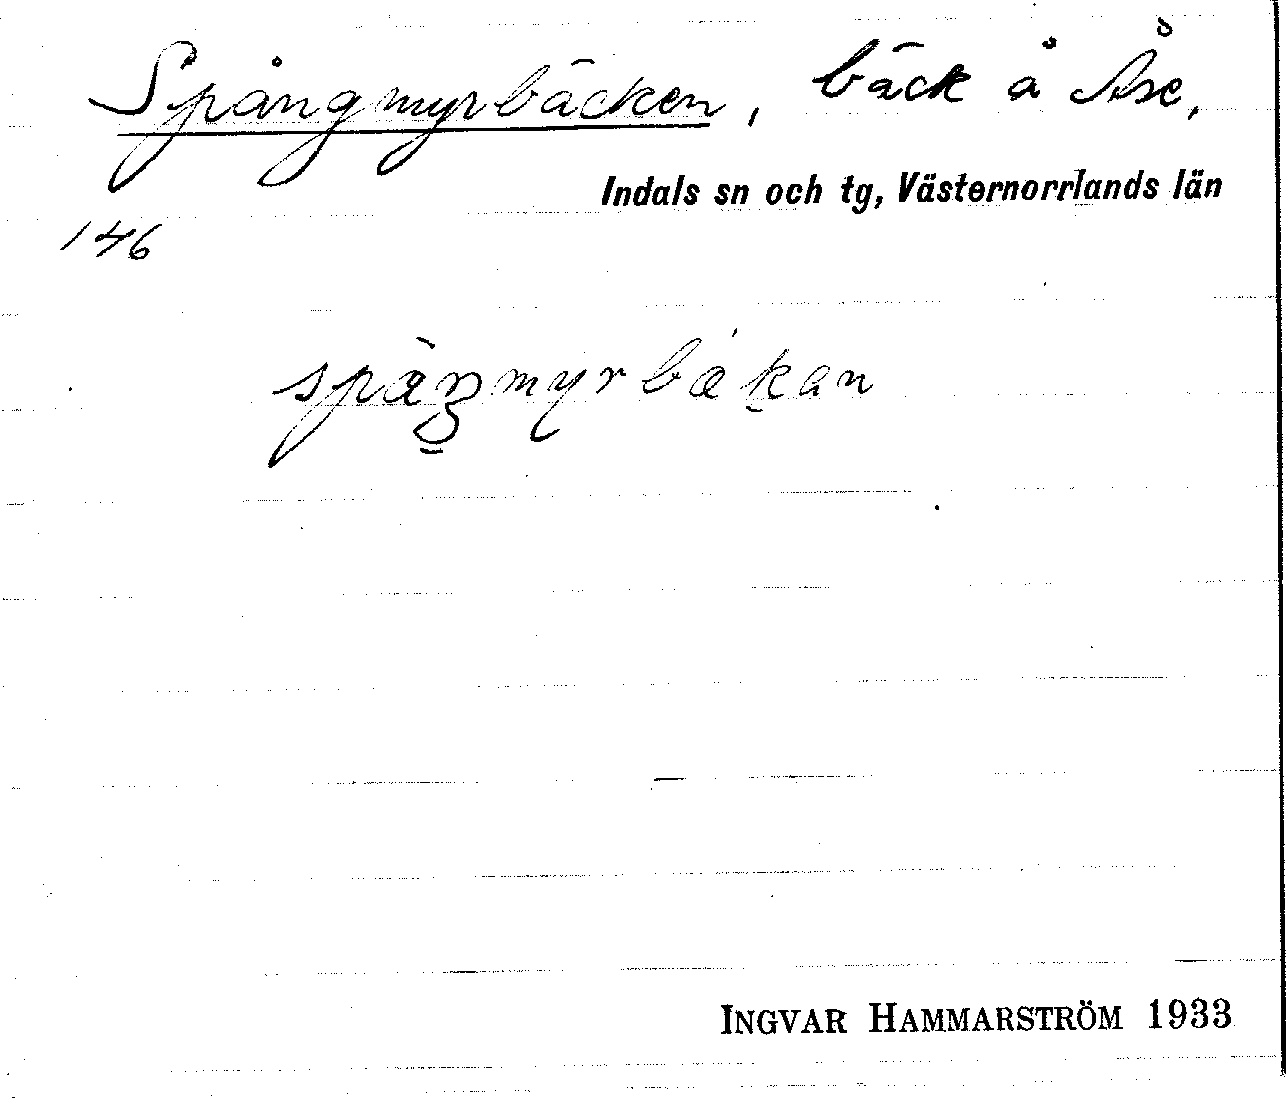 Spångmyrbäcken, bäck å Åse,
Indals sn och tg, Västernorrlands län
146
spàŋmyrbækan
INGVAR HAMMARSTRÖM 1933